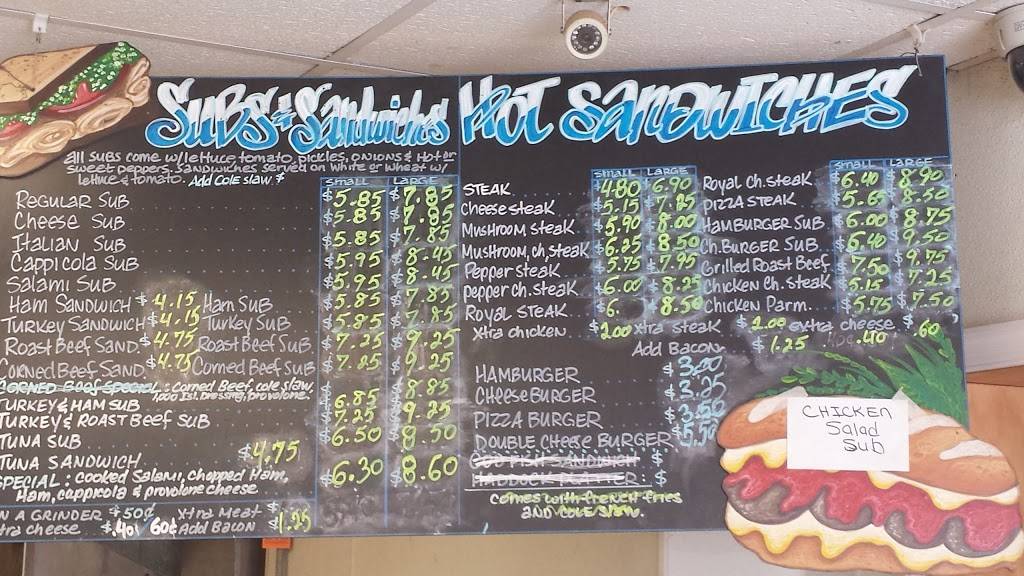 SUBS & Sandwiches
all subs come w/ lettuce, tomato, pickles, onions & Hot or
sweet peppers. Sandwiches served on white or wheat w/
lettuce & tomato. Add Cole slaw. $
Small Large
Regular Sub $5.85 $7.85
Cheese Sub $5.85 $7.85
Italian Sub $5.85 $7.85
Cappicola Sub $5.95 $8.45
Salami Sub $5.95 $8.45
Ham Sandwich $4.15 Ham Sub $5.85 $7.85
Turkey Sandwich $4.15 Turkey Sub $5.85 $7.85
Roast Beef Sand. $4.75 Roast Beef Sub $7.25 $9.25
Corned Beef Sand. $4.75 Corned Beef Sub $7.25 $9.25
Corned Beef Special: Corned Beef, cole slaw,
1000 Isl. Dressing, provolone. $8.85
Turkey & Ham Sub $6.85
Turkey & Roast Beef Sub $7.25 $9.25
Tuna Sub $6.50 $8.50
Tuna Sandwich $4.75
Special: cooked Salami, chopped Ham, $6.30 $8.60
Ham, cappicola & provolone cheese
n a Grinder + 50¢ Xtra Meat
tra cheese .40/60¢ Add Bacon $1.95
HOT SANDWICHES
Small Large
STEAK $4.80 $6.90
Cheese steak $5.15 $7.85
Mushroom steak $5.90 $8.00
Mushroom, ch. steak $6.25 $8.50
Pepper steak $5.75 $7.95
pepper ch. steak $6.00 $8.25
Royal STEAK $6. $8.50
Xtra chicken $2.00 Xtra steak $2.00 extra cheese .60
Small Large
Royal Ch. steak $6.40 $8.90
Pizza Steak $5.65 $8.50
Hamburger Sub $6.00 $8.75
Ch. Burger Sub $6.40 $9.50
Grilled Roast Beef $7.50 $9.75
Chicken Ch. Steak $5.15 $7.25
Chicken Parm. $5.75 $7.50
Add Bacon $1.25 .40
HAMBURGER
CHEESEBURGER $3.25
PIZZA BURGER
DOUBLE CHEESE BURGER
comes with french fries
and cole slaw.
CHICKEN
Salad
Sub